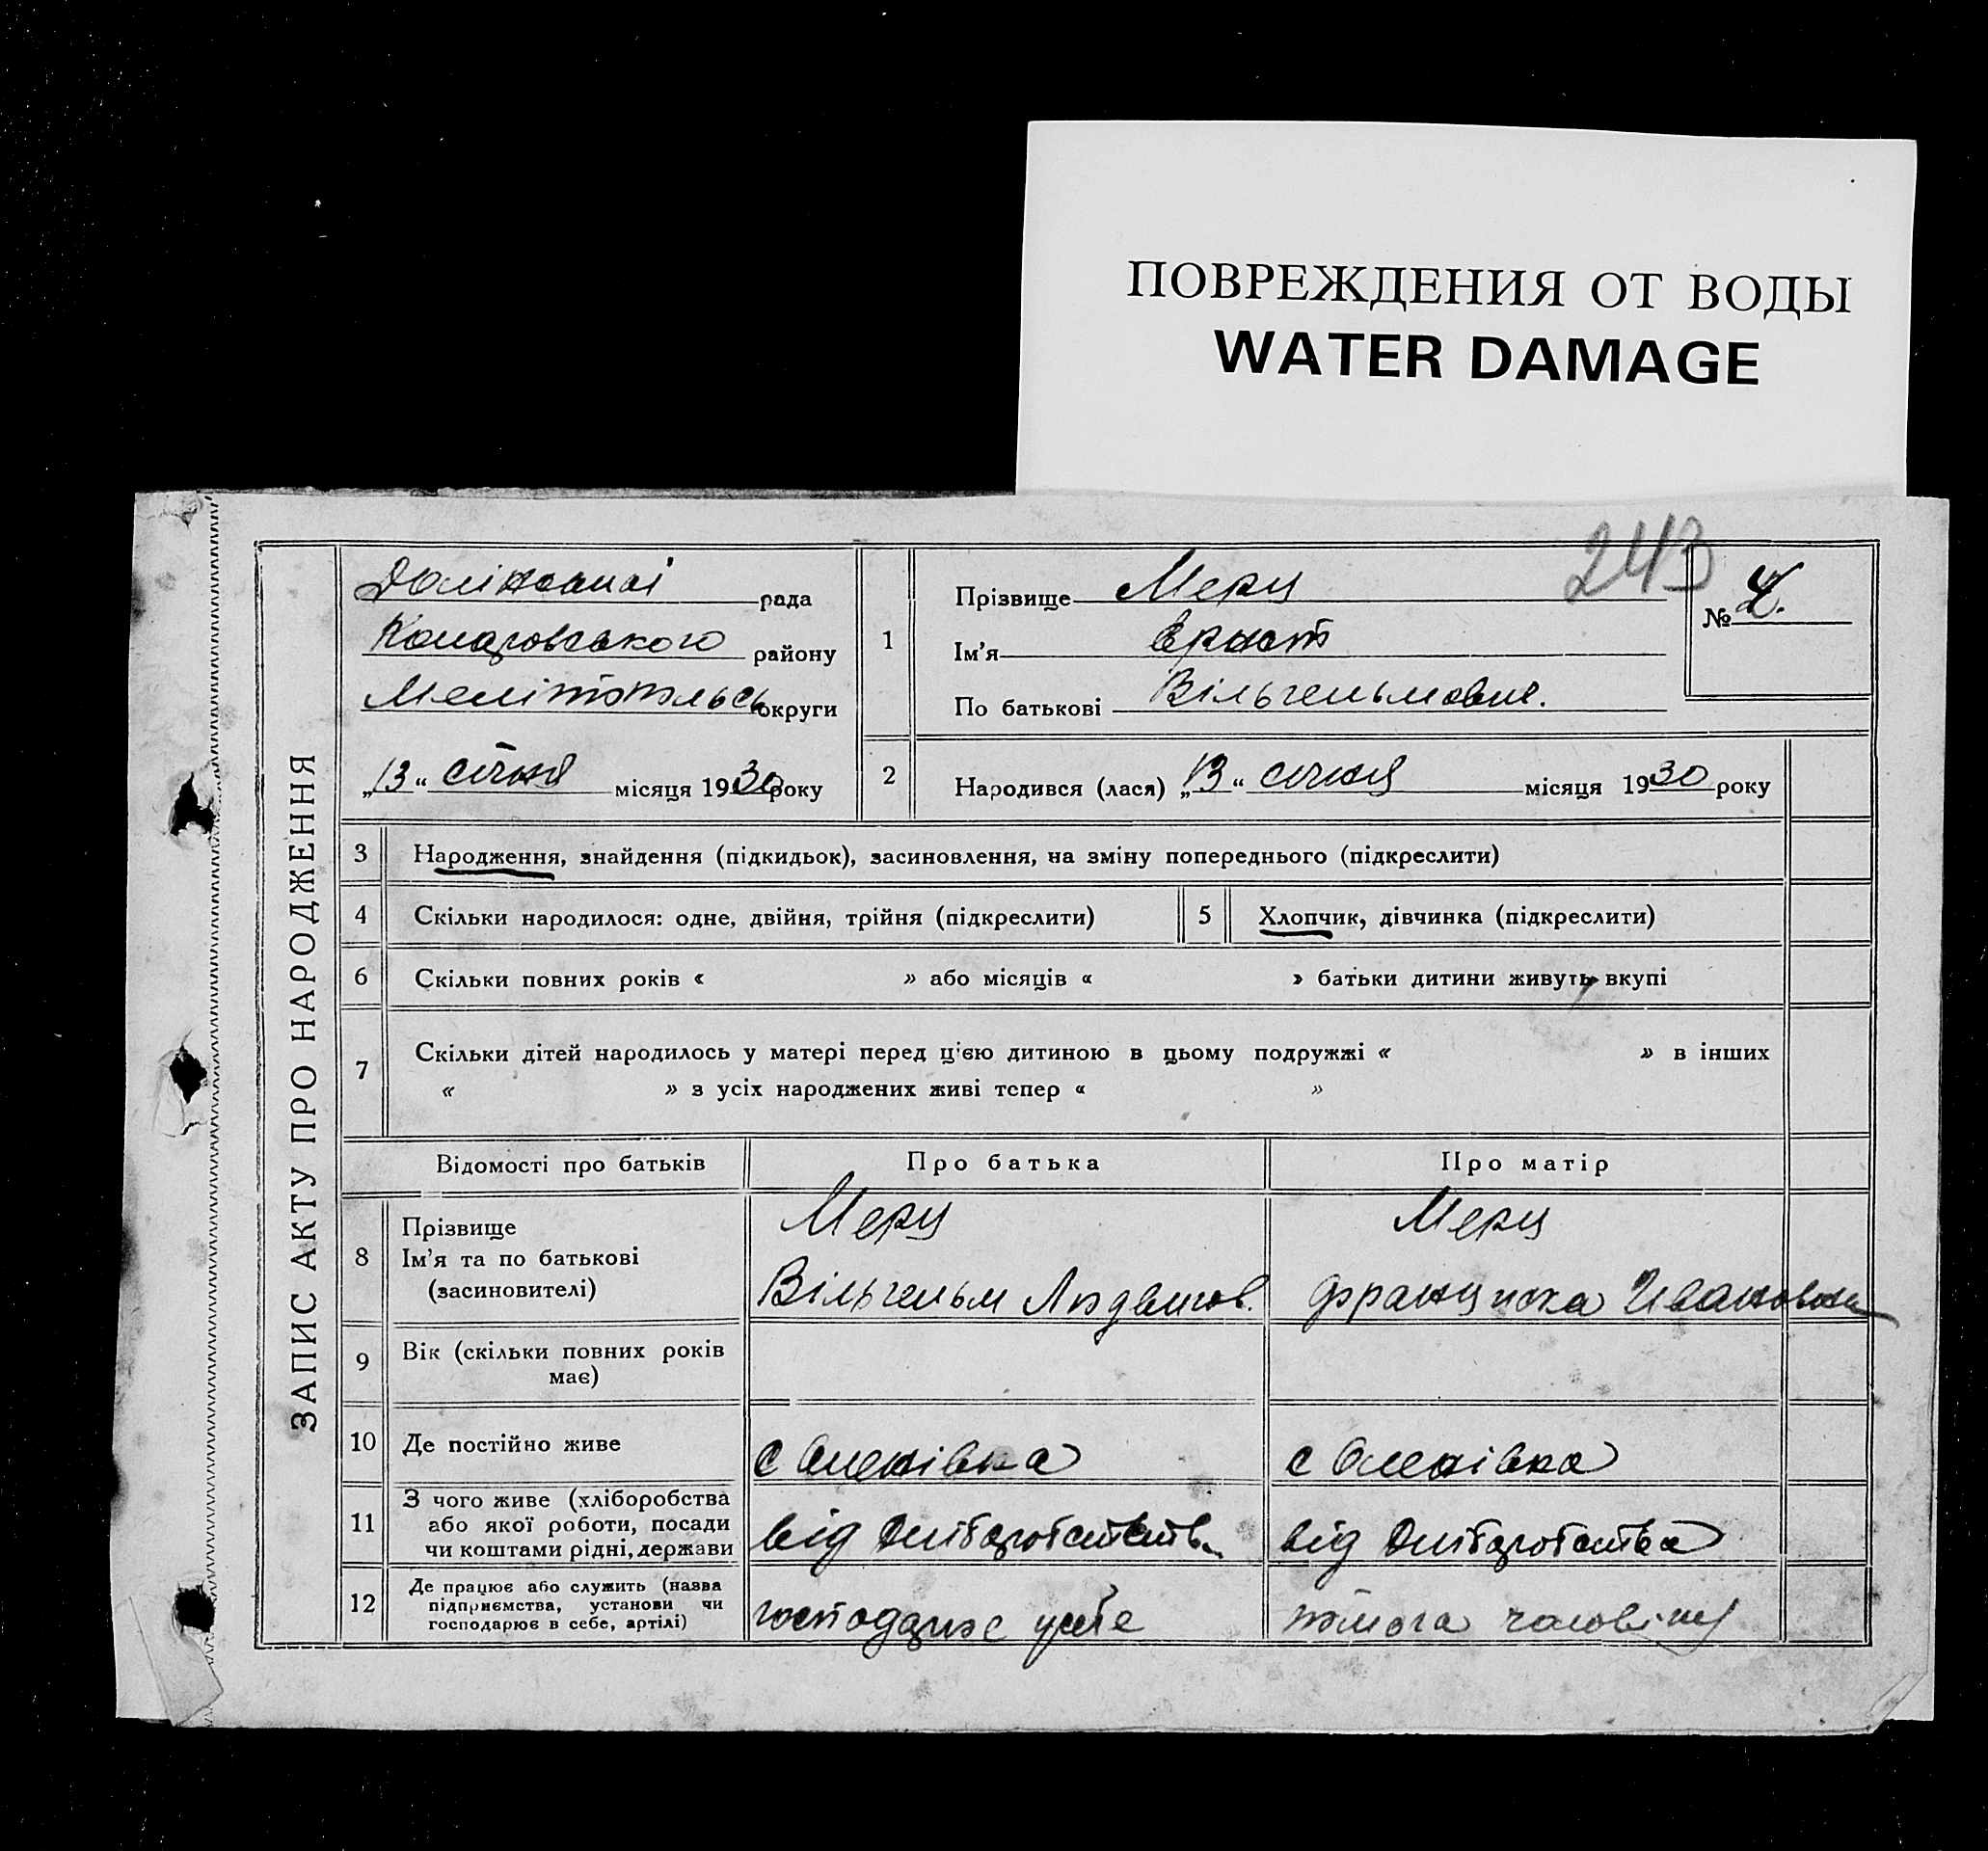 ПОВРЕЖДЕНИЯ ОТ ВОДЫ
WATER DAMAGE
243
ЗАПИС АКТУ ПРО НАРОДЖЕННЯ
рада
району
Мелітопольсь округи
„13“ січня місяця 1930 року
1
Прізвище Мерц
Ім'я Ернст
По батькові Вільгельмович.
№ 4.
2
Народився (лася) „13“ січня місяця 1930 року
3 Народження, знайдення (підкидьок), засиновлення, на зміну попереднього (підкреслити)
4 Скільки народилося: одне, двійня, трійня (підкреслити)
5 Хлопчик, дівчинка (підкреслити)
6 Скільки повних років « » або місяців « » батьки дитини живуть вкупі
7 Скільки дітей народилось у матері перед цією дитиною в цьому подружжі « » в інших
« » з усіх народжених живі тепер « »
Відомості про батьків Про батька Про матір
8 Прізвище
Ім'я та по батькові
(засиновителі)
Мерц
Вільгельм Людвигов.
Мерц
Франциска Ивановна
9 Вік (скільки повних років
має)
10 Де постійно живе
с Оленівка
с Оленівка
11 З чого живе (хліборобства
або якої роботи, посади
чи коштами рідні, держави
від
від хліборобства
12 Де працює або служить (назва
підприємства, установи чи
господарює в себе, артілі)
господарює у себе
помога чоловіку